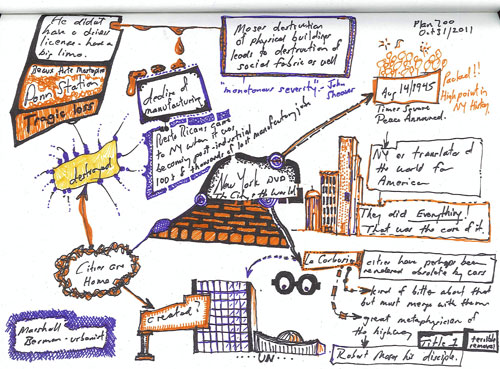 He didn't
have a drivers
license - had a
big limo.
Beaux Arts Masterpiece
Penn Station
Tragic loss
Moses destruction
of physical buildings
leads to destruction of
social fabric as well
"monotonous severity" - John
Shower
Plan 700
Oct 31/2011
Aug 14/1945
Times Square
Peace Announced.
Packed!!
High point in
NY History
decline of
manufacturing
Puerto Ricans came
to NY when it was
becoming post-industrial
100s & thousands of lost manufacturing jobs
destroyed
New York DVD
The City & the World
NY as translator of
the world for
America
They did Everything!
That was the core of it.
Cities are
Home
Le Corbusier
cities have perhaps been
rendered obsolete by cars
kind of bitter about that
but must merge with them
great metaphysician of
the highway
Title 1
terrible
removal
Robert Moses his disciple.
created?
Marshall
Berman - urbanist
UN